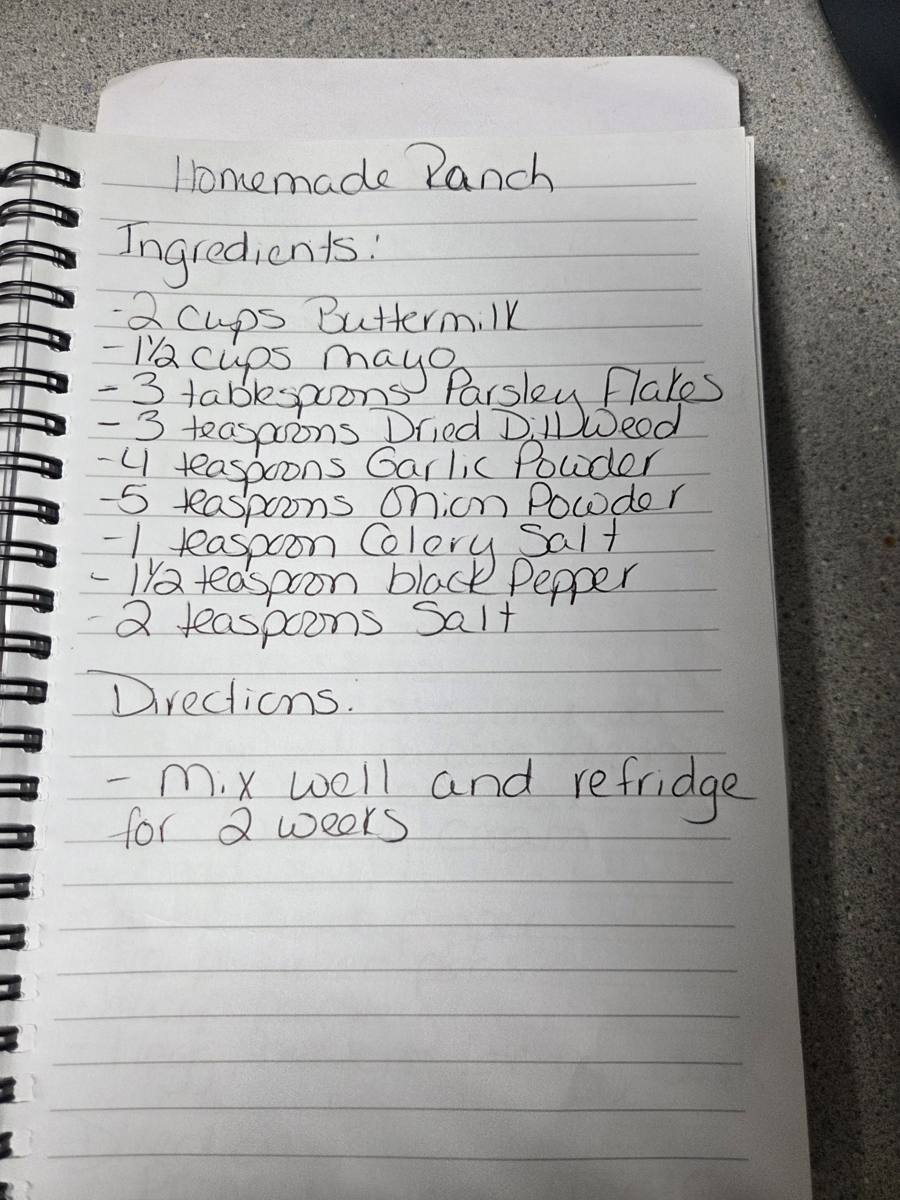 Homemade Ranch
Ingredients:
-2 cups Buttermilk
-1½ cups mayo
- 3 tablespoons Parsley Flakes
- 3 teaspoons Dried Dill Weed
-4 teaspoons Garlic Powder
-5 teaspoons Onion Powder
-1 teaspoon Celery Salt
- 1½ teaspoon black Pepper
- 2 teaspoons Salt
Directions:
- Mix well and refridge
for 2 weeks